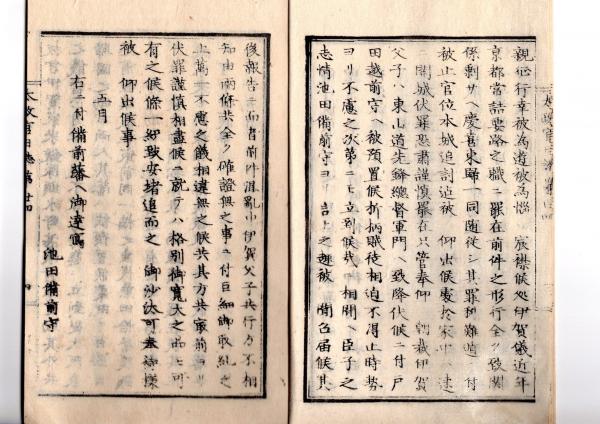 親征行幸被為遊被為惱 宸襟候処伊賀儀近年
京都當詰要路之職ニ罷在前件之形行全ク致関
係剰サヘ慶喜東帰ヘ同随従シ其罪科難遁ニ付
被止官位本城追討迄被 仰出候處於家中ハ速
ニ開城伏罪恐粛謹慎罷在只管奉仰 朝裁伊賀
父子ハ東山道先鋒総督軍門ヘ致降伏候ニ付戸
田越前守ヘ被預置候折柄賊徒相迫不得止時勢
ヨリ不慮之次第ニモ立到候哉ニ相聞ヘ臣子之
志情池田備前守ヨリ言上之趣被 聞召届候其
後報告ニ而者前件混亂中伊賀父子共行方不相
知由両條共全ク確證無之事ニ付巨細御取糺之
上萬一不慮之儀相違無之候共其方共家前ヨリ
伏罪謹慎相盡候ニ就テハ格別御寛大之思召可
有之候條一紛致安堵追而之 御沙汰可奉待様
被 仰出候事
五月
右ニ付備前藩ヘ御達寫
池田備前守
太政官日誌第廿四